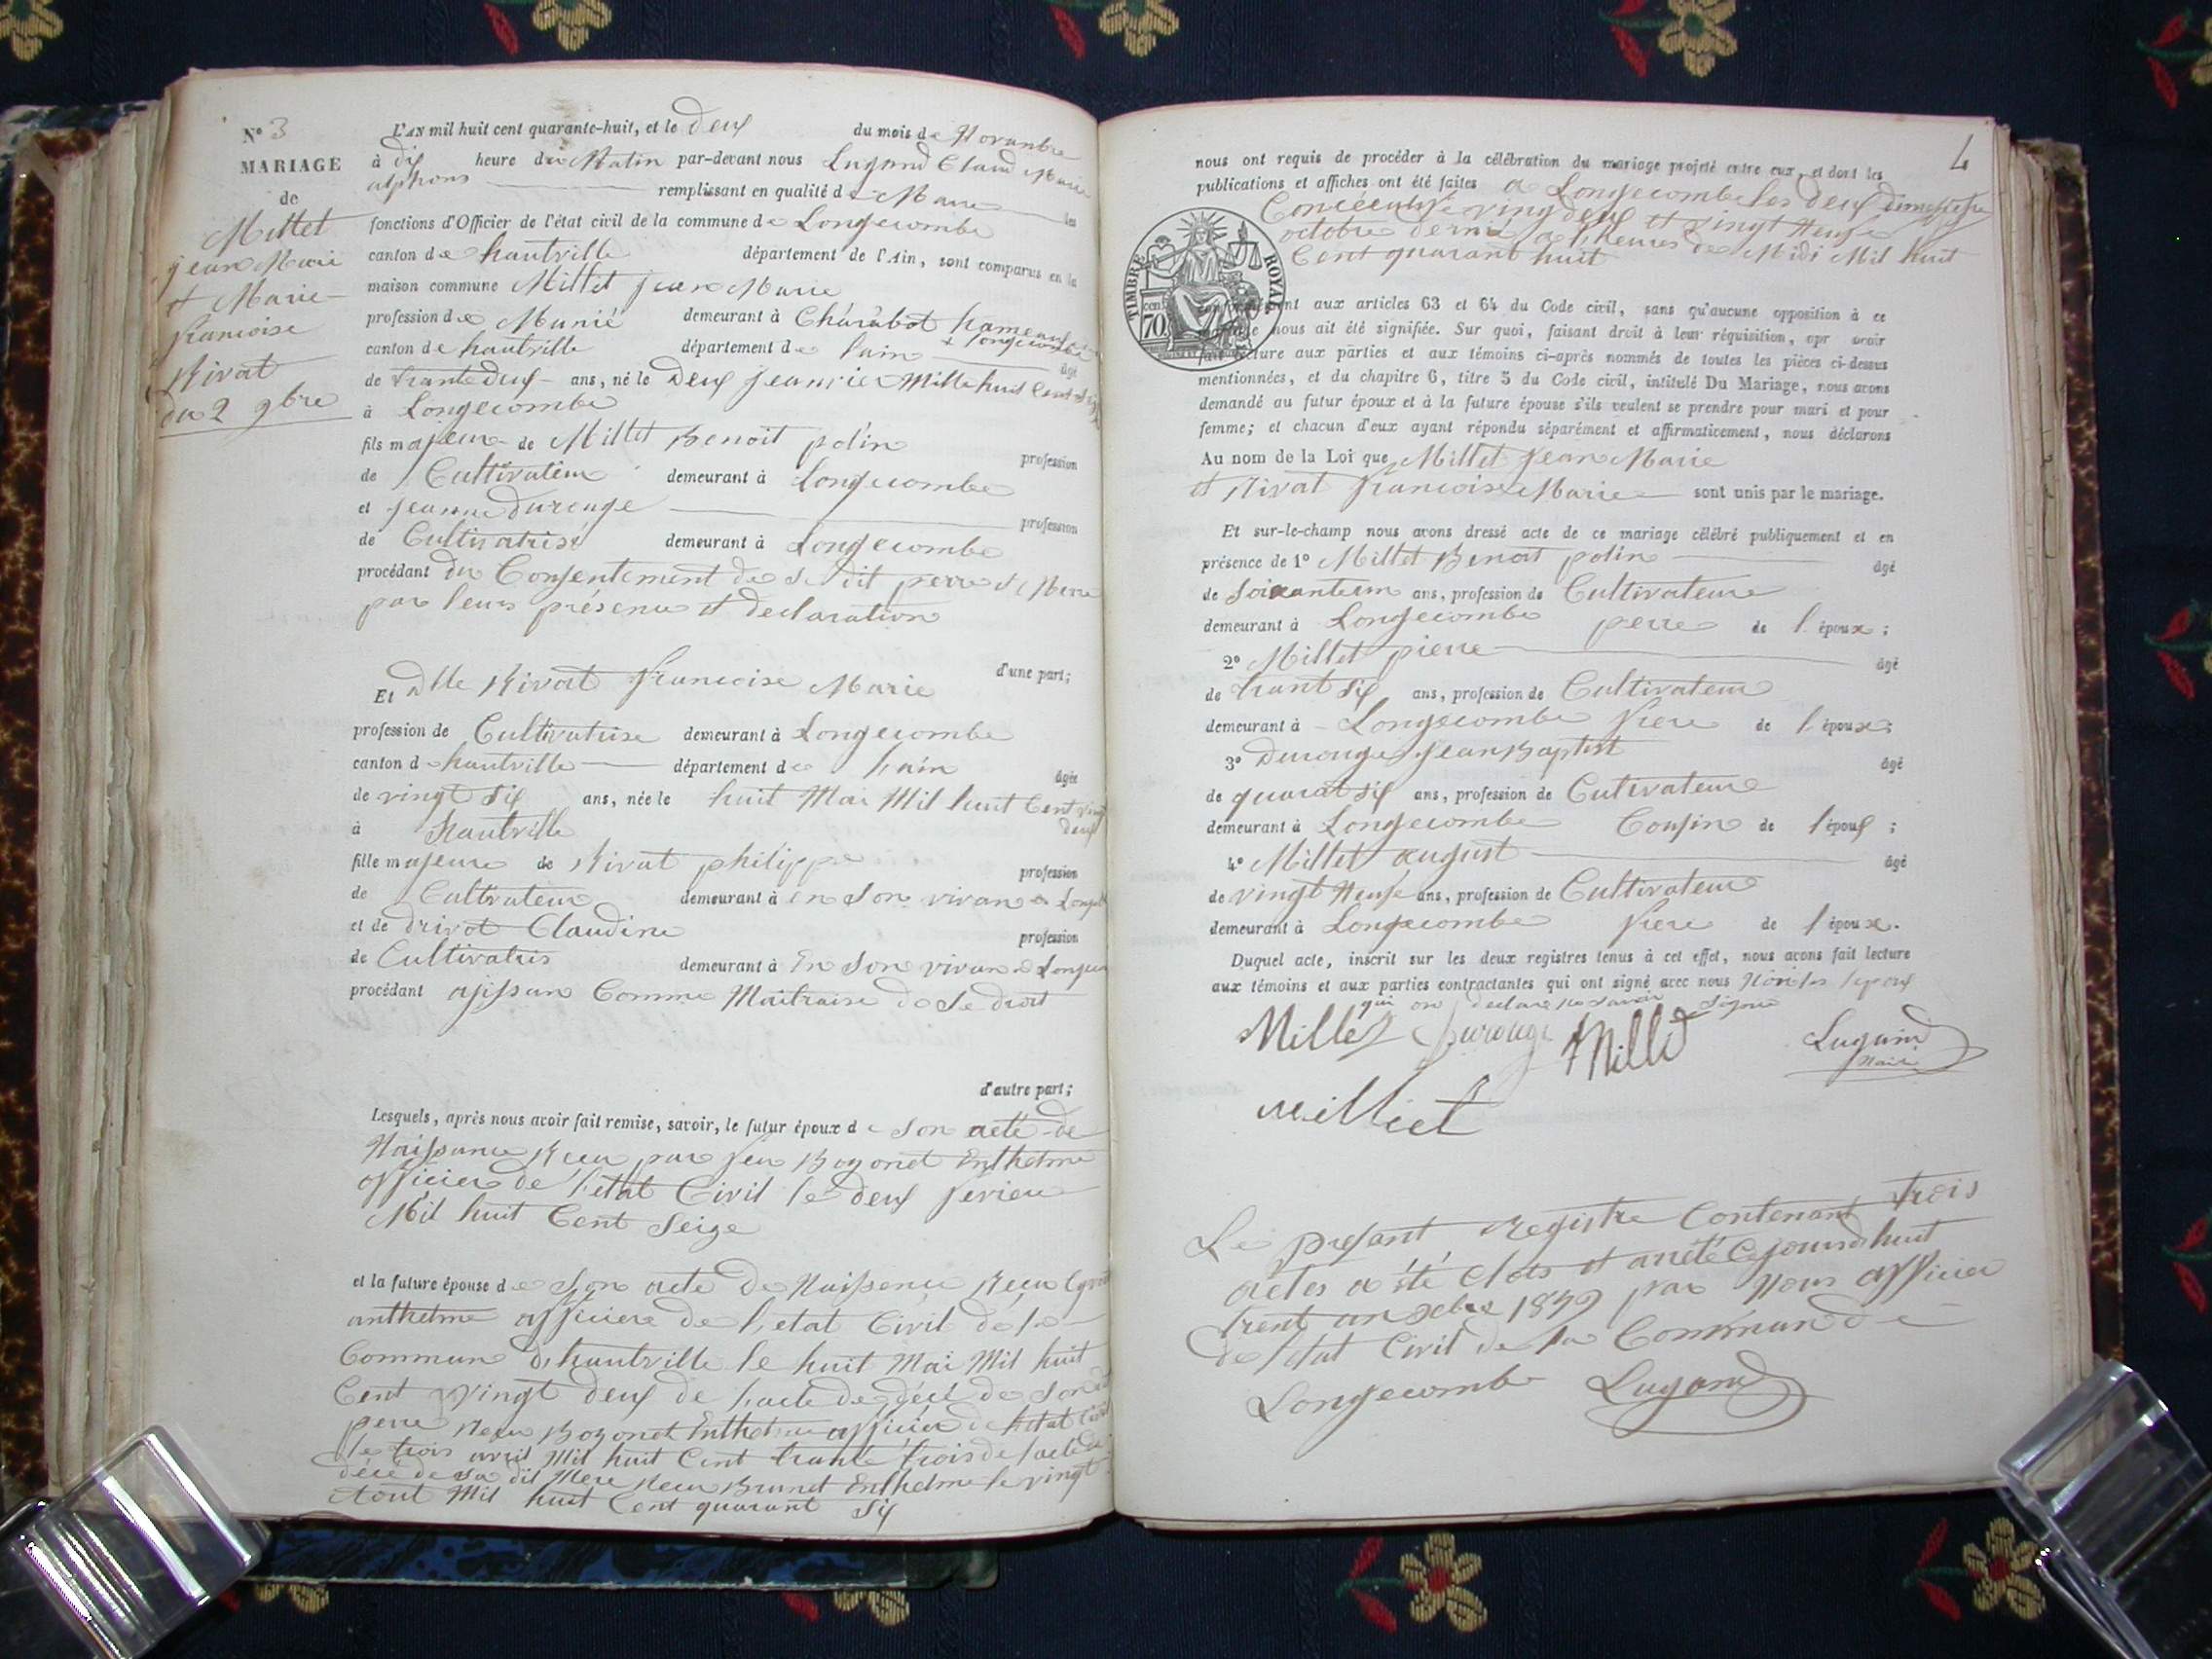 N° 3
MARIAGE
de
Millet
jean Marie
et Marie
francoise
Rivat
du 2 9bre
L'AN mil huit cent quarante-huit, et le deux du mois de Novembre
à dix heure du Matin par-devant nous Lugand Claud Marie
alphons remplissant en qualité de Maire les
fonctions d'Officier de l'état civil de la commune de Longecombe
canton de hautville département de l'Ain, sont comparus en la
maison commune Millet jean Marie
profession de Munié demeurant à Charabot hameau
canton de hautville département de lain longecombe âgé
de trante deux ans, né le Deux jeanvier Mille huit Cent
à Longecombe
fils majeur de Millet Benoit polin profession
de Cultivateur demeurant à Longecombe
et jeanne Durouge profession
de Cultivatrise demeurant à Longecombe
procédant du Consentement de se dit perre et Merre
par leurs présence et declaration
d'une part;
Et dlle Rivat francoise Marie
profession de Cultivatrise demeurant à Longecombe
canton de hautville département de lain âgée
de vingt six ans, née le huit Mai Mil huit Cent vingt
à hautville deux
fille majeure de Rivat philippe profession
de Cultivateur demeurant à en son vivan a
et de drivot Claudine profession
de Cultivatris demeurant à En son vivan a
procédant ajissan Comme Maitraise de se droit
d'autre part;
Lesquels, après nous avoir fait remise, savoir, le futur époux de son acte de
Naissance Recu par feu Bozonet Enthelme
officier de l'etat Civil le deux fevrieu
Mil huit Cent Seize
et la future épouse de son acte de Naissence Recu
anthelme officiere de l'etat Civil de la
Commune d'hautville le huit Mai Mil huit
Cent vingt deux de l'acte de décè de son
perre Recu Bozonet Enthelme officier de l'etat Civil
le trois avril Mil huit Cent trante trois de l'acte de
décè de sa dit Mere Recu Brunet Enthelme le vingt
aout Mil huit Cent quarant six
4
nous ont requis de procéder à la célébration du mariage projeté entre eux, et dont les
publications et affiches ont été faites a Longecombe les deux dimanche
Concécutife vingt deux et vingt neufe
octobre dernié a l'heures de Midi Mil huit
Cent quarant huit
TIMBRE ROYAL
cen. 70
aux articles 63 et 64 du Code civil, sans qu'aucune opposition à ce
nous ait été signifiée. Sur quoi, faisant droit à leur réquisition, apr avoir
fait lecture aux parties et aux témoins ci-après nommés de toutes les pièces ci-dessus
mentionnées, et du chapitre 6, titre 5 du Code civil, intitulé Du Mariage, nous avons
demandé au futur époux et à la future épouse s'ils veulent se prendre pour mari et pour
femme; et chacun d'eux ayant répondu séparément et affirmativement, nous déclarons
Au nom de la Loi que Millet jean Marie
et Rivat francoise Marie sont unis par le mariage.
Et sur-le-champ nous avons dressé acte de ce mariage célébré publiquement et en
présence de 1° Millet Benoit polin âgé
de soixanteun ans, profession de Cultivateure
demeurant à Longecombe perre de l'époux;
2° Millet pierre âgé
de trant six ans, profession de Cultivateur
demeurant à Longecombe frere de l'époux;
3° Durouge jean Baptist âgé
de quarat six ans, profession de Cutivateure
demeurant à Longecombe Cousin de l'époux;
4° Millet august âgé
de vingt Neufe ans, profession de Cultivateur
demeurant à Longecombe frere de l'époux.
Duquel acte, inscrit sur les deux registres tenus à cet effet, nous avons fait lecture
aux témoins et aux parties contractantes qui ont signé avec nous Non les
qui on declaré ne savoir signié
Millet Durouge Millet Lugand
Maire
milliet
Le présant Registre Contenant trois
actes a été Clots et arrété Cejourdhuit
trent un xbre 1849 par Nous officier
de l'etat Civil de la Commun de
Longecombe Lugand